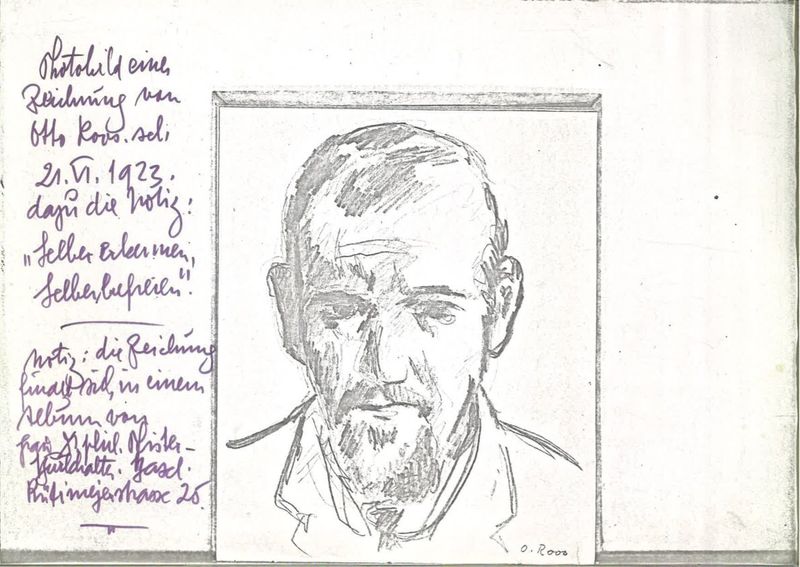 Photobild einer
Zeichnung von
Otto Roos. sel.
21.VI.1923.
dazu die Notiz:
"Selber Erkennen,
Selber befreien".
Notiz: die Zeichnung
findet sich in einem
Album von
frau phil. Pfister-
Basel.
Rütimeyerstrasse 25
O. Roos